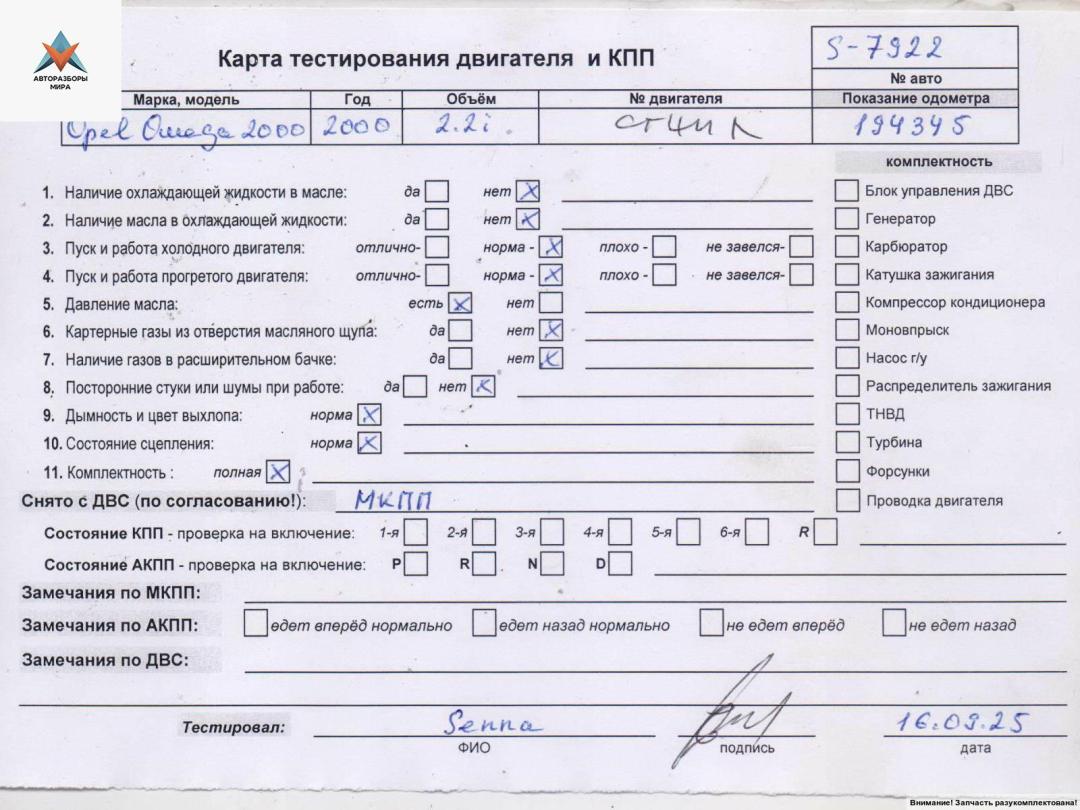 АВТОРАЗБОРЫ
МИРА
Карта тестирования двигателя и КПП
S-7922
№ авто
Марка, модель Год Объём № двигателя Показание одометра
Opel Omega 2000 2000 2.2i. 194345
комплектность
1. Наличие охлаждающей жидкости в масле: да нет X Блок управления ДВС
2. Наличие масла в охлаждающей жидкости: да нет X Генератор
3. Пуск и работа холодного двигателя: отлично- норма - X плохо - не завелся- Карбюратор
4. Пуск и работа прогретого двигателя: отлично- норма - X плохо - не завелся- Катушка зажигания
5. Давление масла: есть X нет Компрессор кондиционера
6. Картерные газы из отверстия масляного щупа: да нет X Моновпрыск
7. Наличие газов в расширительном бачке: да нет X Насос г/у
8. Посторонние стуки или шумы при работе: да нет X Распределитель зажигания
9. Дымность и цвет выхлопа: норма X ТНВД
10. Состояние сцепления: норма X Турбина
11. Комплектность : полная X Форсунки
Снято с ДВС (по согласованию!): МКПП Проводка двигателя
Состояние КПП - проверка на включение: 1-я 2-я 3-я 4-я 5-я 6-я R
Состояние АКПП - проверка на включение: P R N D
Замечания по МКПП:
Замечания по АКПП: едет вперёд нормально едет назад нормально не едет вперёд не едет назад
Замечания по ДВС:
Тестировал: Senna 16.09.25
ФИО подпись дата
Внимание! Запчасть разукомплектована!